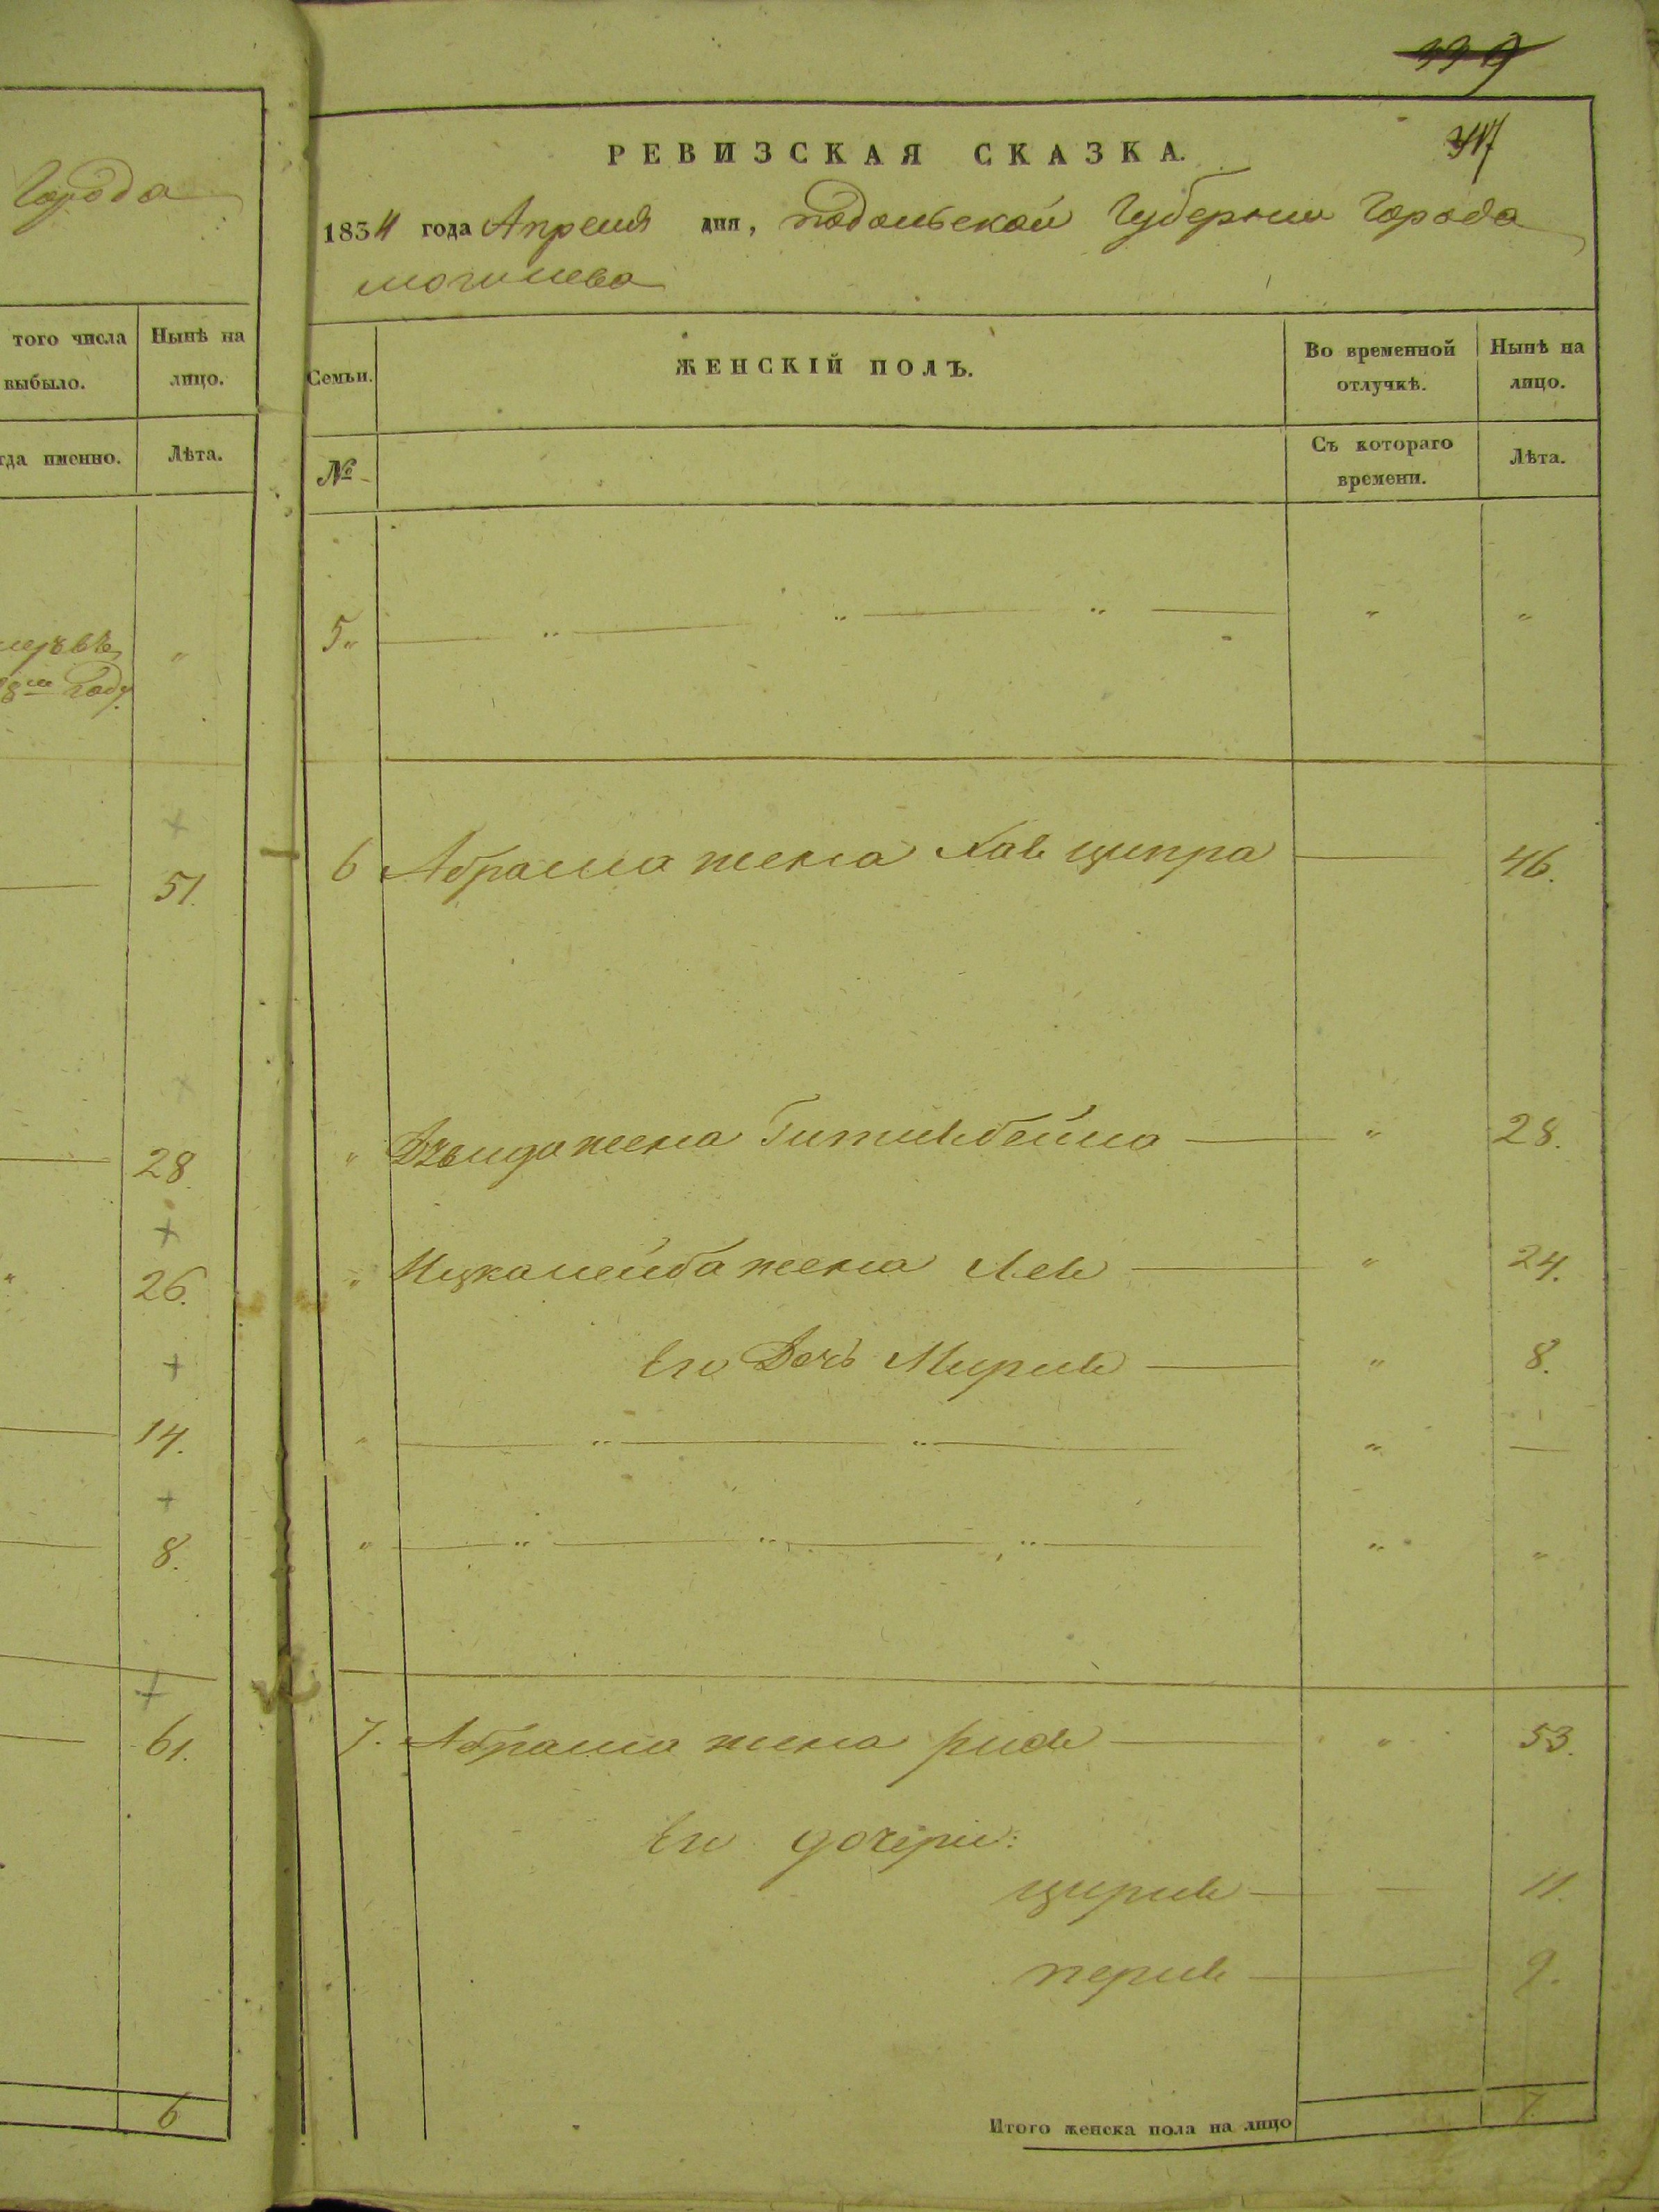 339
317
Города
того числа
выбыло.
Нынѣ на
лицо.
гда именно.
Лѣта.
году.
51.
28.
26.
14.
8.
61.
6
РЕВИЗСКАЯ СКАЗКА.
1834 года Апреля дня, подольской Губернии Города
могилева
Семьи.
ЖЕНСКІЙ ПОЛЪ.
Во временной
отлучкѣ.
Нынѣ на
лицо.
№
Съ котораго
времени.
Лѣта.
5 „
6 Абрама жена Хая ципра 46.
„ жена Гитлябейла „ 28.
„ Ицкалейба жена Лея „ 24.
Его Дочь Мирля „ 8.
7. Абрама жена „ 53.
Его дочери:
цирля 11.
перля 9.
Итого женска пола на лицо 7.